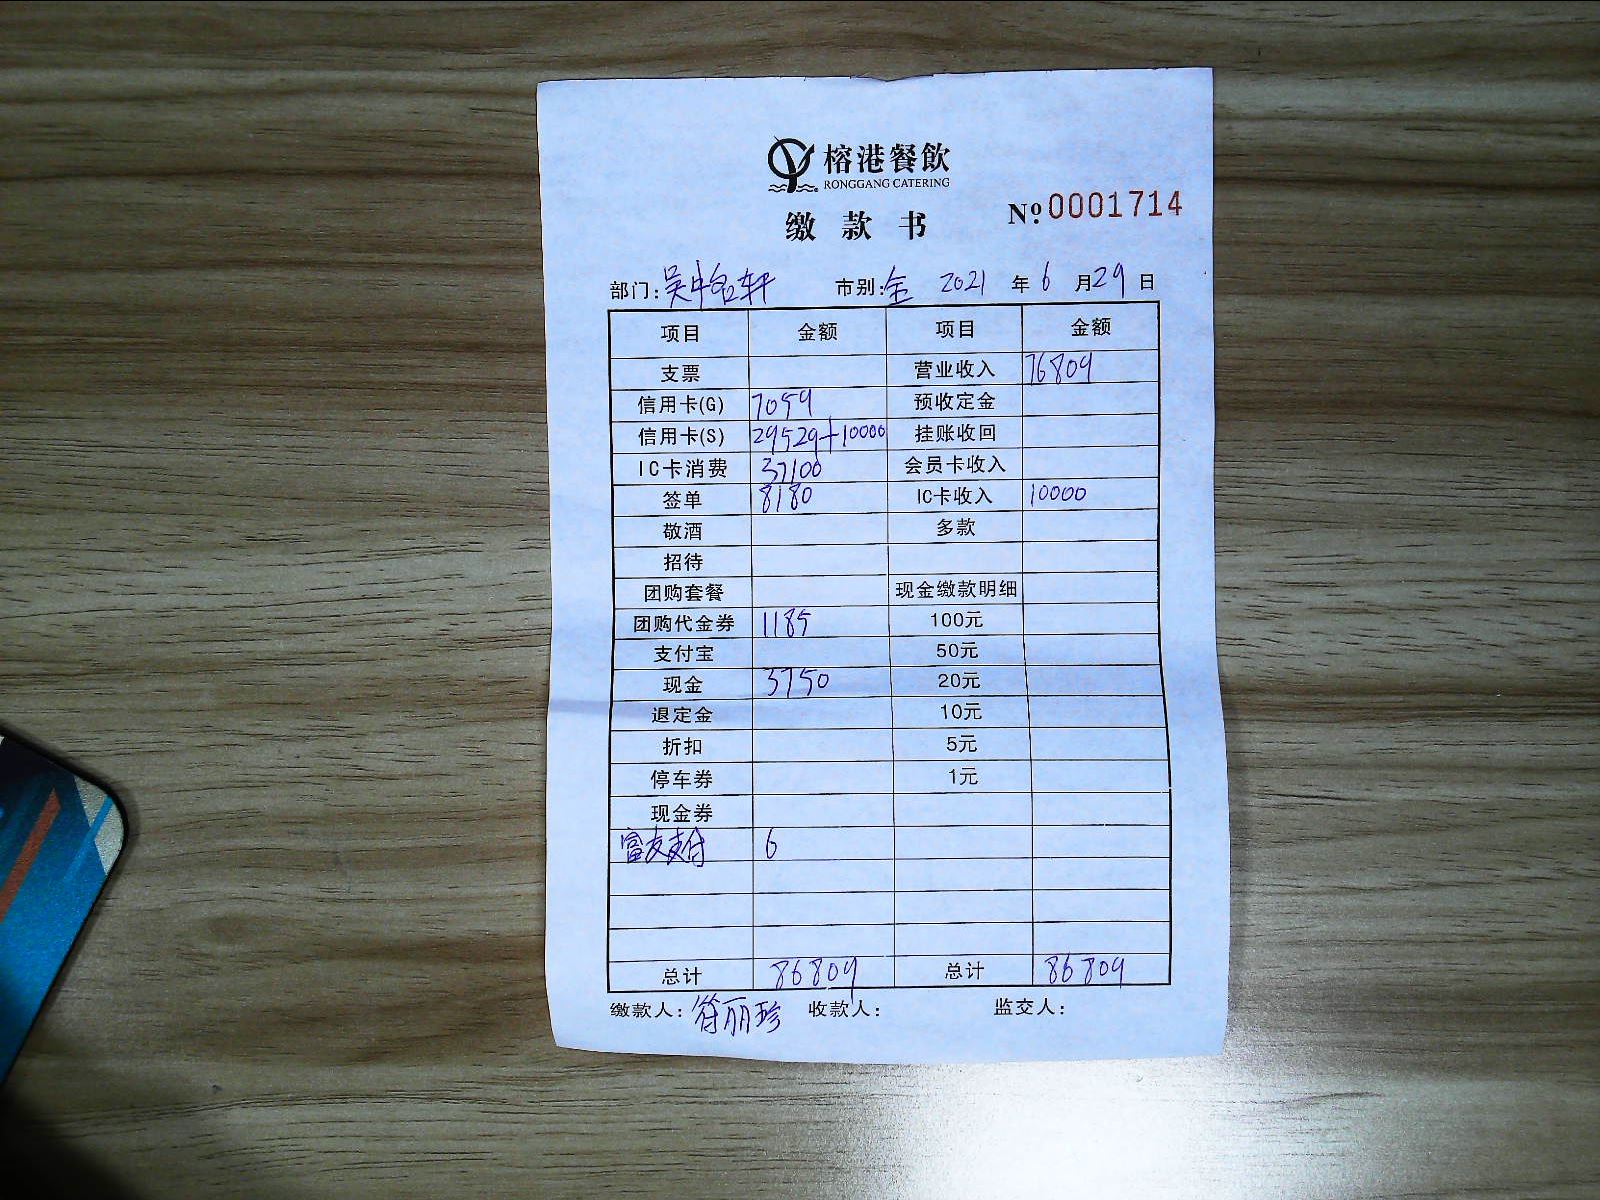 榕港餐飲
RONGGANG CATERING
缴款书
№ 0001714
部门:吴中名轩 市别:全 2021 年 6 月 29 日
项目 金额 项目 金额
支票 营业收入 76809
信用卡(G) 7059 预收定金
信用卡(S) 29529+10000 挂账收回
IC卡消费 37100 会员卡收入
签单 8180 IC卡收入 10000
敬酒 多款
招待
团购套餐 现金缴款明细
团购代金券 1185 100元
支付宝 50元
现金 3750 20元
退定金 10元
折扣 5元
停车券 1元
现金券
富友支付 6
总计 86809 总计 86809
缴款人:符丽珍 收款人: 监交人: